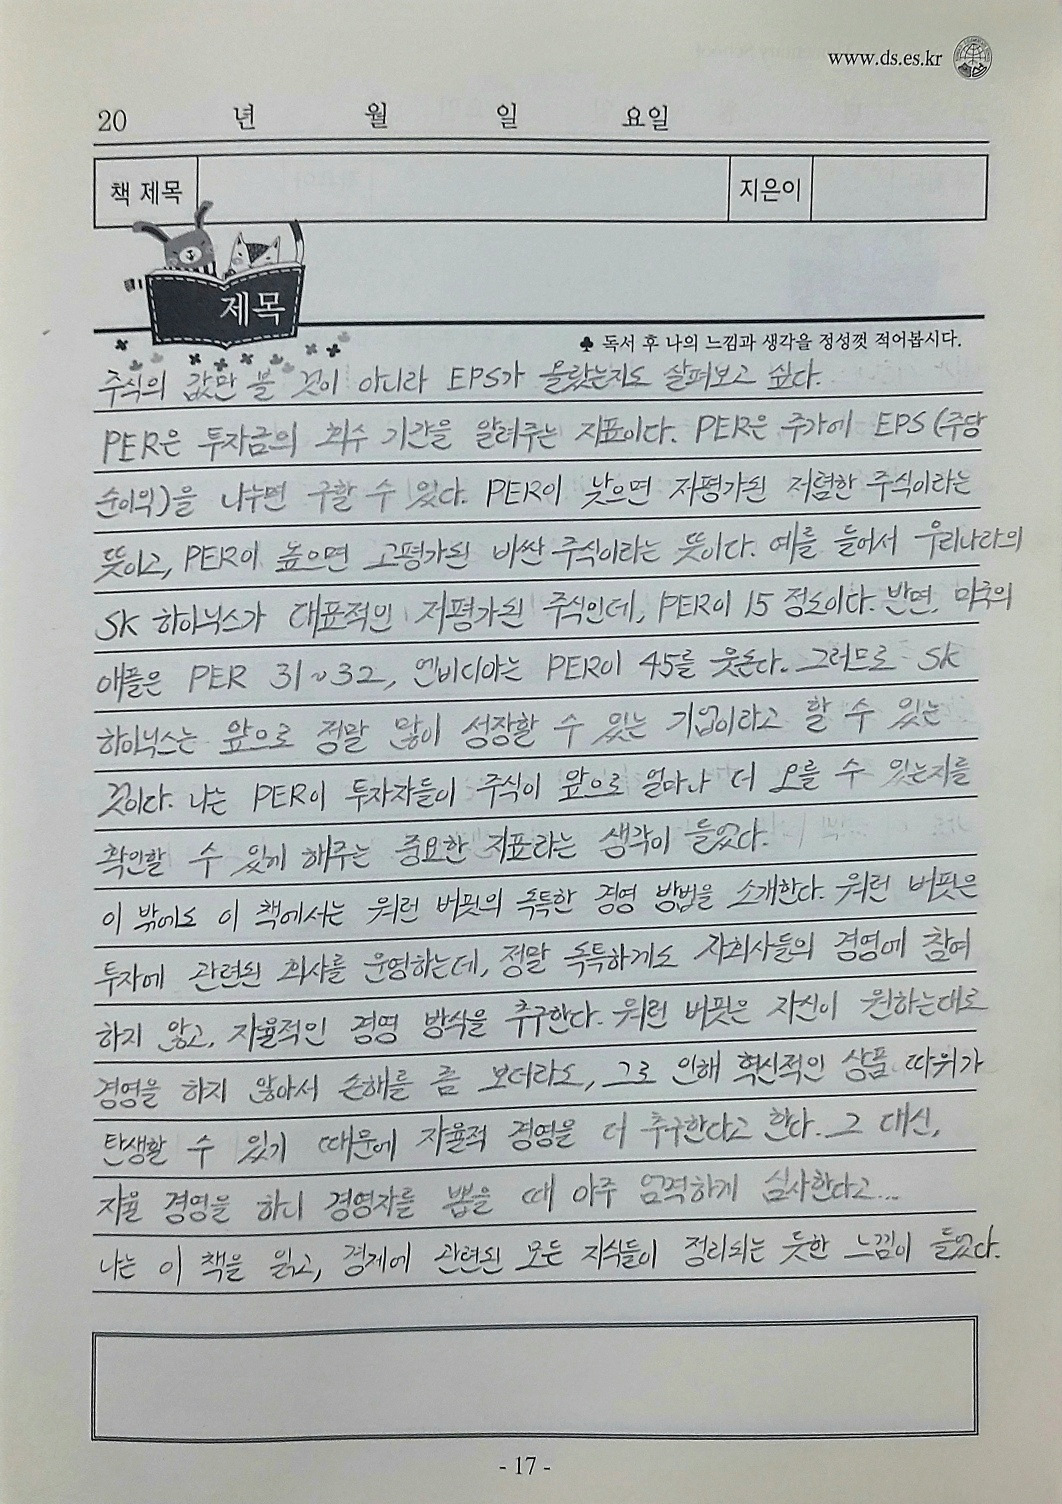 www.ds.es.kr
20 년 월 일 요일
책 제목 지은이
제목
♣ 독서 후 나의 느낌과 생각을 정성껏 적어봅시다.
주식의 값만 볼 것이 아니라 EPS가 올랐는지도 살펴보고 싶다.
PER은 투자금의 회수 기간을 알려주는 지표이다. PER은 주가에 EPS (주당
순이익)을 나누면 구할 수 있다. PER이 낮으면 저평가된 저렴한 주식이라는
뜻이고, PER이 높으면 고평가된 비싼 주식이라는 뜻이다. 예를 들어서 우리나라의
SK 하이닉스가 대표적인 저평가된 주식인데, PER이 15 정도이다. 반면, 미국의
애플은 PER 31~32, 엔비디아는 PER이 45를 웃돈다. 그러므로 SK
하이닉스는 앞으로 정말 많이 성장할 수 있는 기업이라고 할 수 있는
것이다. 나는 PER이 투자자들이 주식이 앞으로 얼마나 더 오를 수 있는지를
확인할 수 있게 해주는 중요한 지표라는 생각이 들었다.
이 밖에도 이 책에서는 워런 버핏의 독특한 경영 방법을 소개한다. 워런 버핏은
투자에 관련된 회사를 운영하는데, 정말 독특하게도 자회사들의 경영에 참여
하지 않고, 자율적인 경영 방식을 추구한다. 워런 버핏은 자신이 원하는대로
경영을 하지 않아서 손해를 좀 보더라도, 그로 인해 혁신적인 상품 따위가
탄생할 수 있기 때문에 자율적 경영을 더 추구한다고 한다. 그 대신,
자율 경영을 하니 경영자를 뽑을 때 아주 엄격하게 심사한다고...
나는 이 책을 읽고, 경제에 관련된 모든 지식들이 정리되는 듯한 느낌이 들었다.
- 17 -